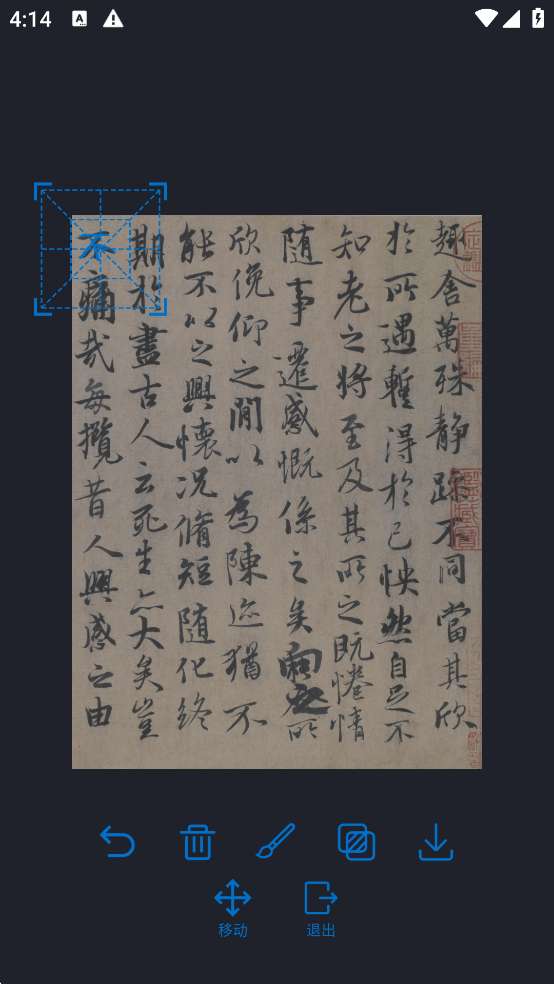 4:14
趣舍萬殊静躁不同當其欣
於所遇蹔得於己怏然自足不
知老之將至及其所之既惓情
随事遷感慨係之矣向之所
欣俛仰之閒以為陳迹猶不
能不以之興懷況脩短随化終
期於盡古人云死生亦大矣豈
不痛哉每攬昔人興感之由
移动
退出